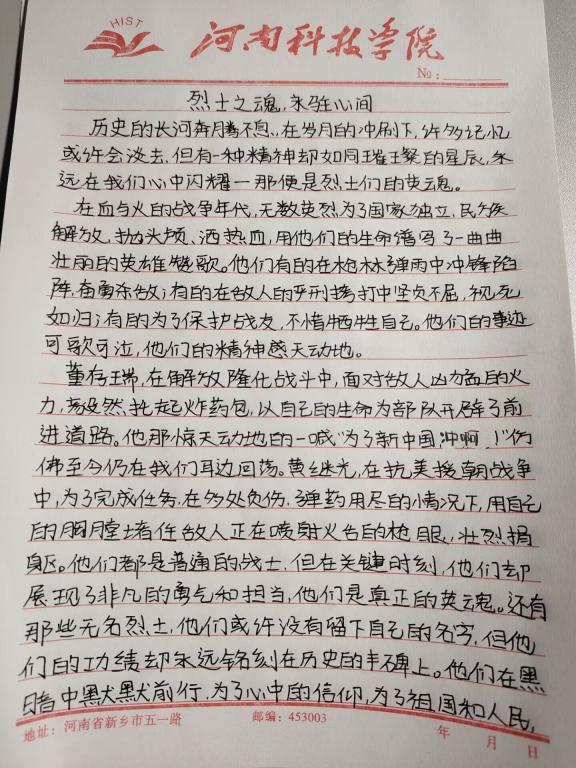 HIST
河南科技学院
№:
烈士之魂,永驻心间
历史的长河奔腾不息,在岁月的冲刷下,许多记忆
或许会淡去,但有一种精神却如同璀璨的星辰,永
远在我们心中闪耀—那便是烈士们的英魂。
在血与火的战争年代,无数英烈为了国家独立,民族
解放,抛头颅、洒热血,用他们的生命谱写了一曲曲
壮丽的英雄赞歌。他们有的在枪林弹雨中冲锋陷
阵,奋勇杀敌;有的在敌人的严刑拷打中坚贞不屈,视死
如归;有的为了保护战友,不惜牺牲自己。他们的事迹
可歌可泣,他们的精神感天动地。
董存瑞,在解放隆化战斗中,面对敌人凶猛的火
力,毅然托起炸药包,以自己的生命为部队开辟了前
进道路。他那惊天动地的一喊“为了新中国,冲啊!”仿
佛至今仍在我们耳边回荡。黄继光,在抗美援朝战争
中,为了完成任务,在多处负伤,弹药用尽的情况下,用自己
的胸膛堵住敌人正在喷射火舌的枪眼,壮烈捐
躯。他们都是普通的战士,但在关键时刻,他们却
展现了非凡的勇气和担当,他们是真正的英魂。还有
那些无名烈士,他们或许没有留下自己的名字,但他
们的功绩却永远铭刻在历史的丰碑上。他们在黑
暗中默默前行,为了心中的信仰,为了祖国和人民,
地址:河南省新乡市五一路 邮编:453003 年 月 日